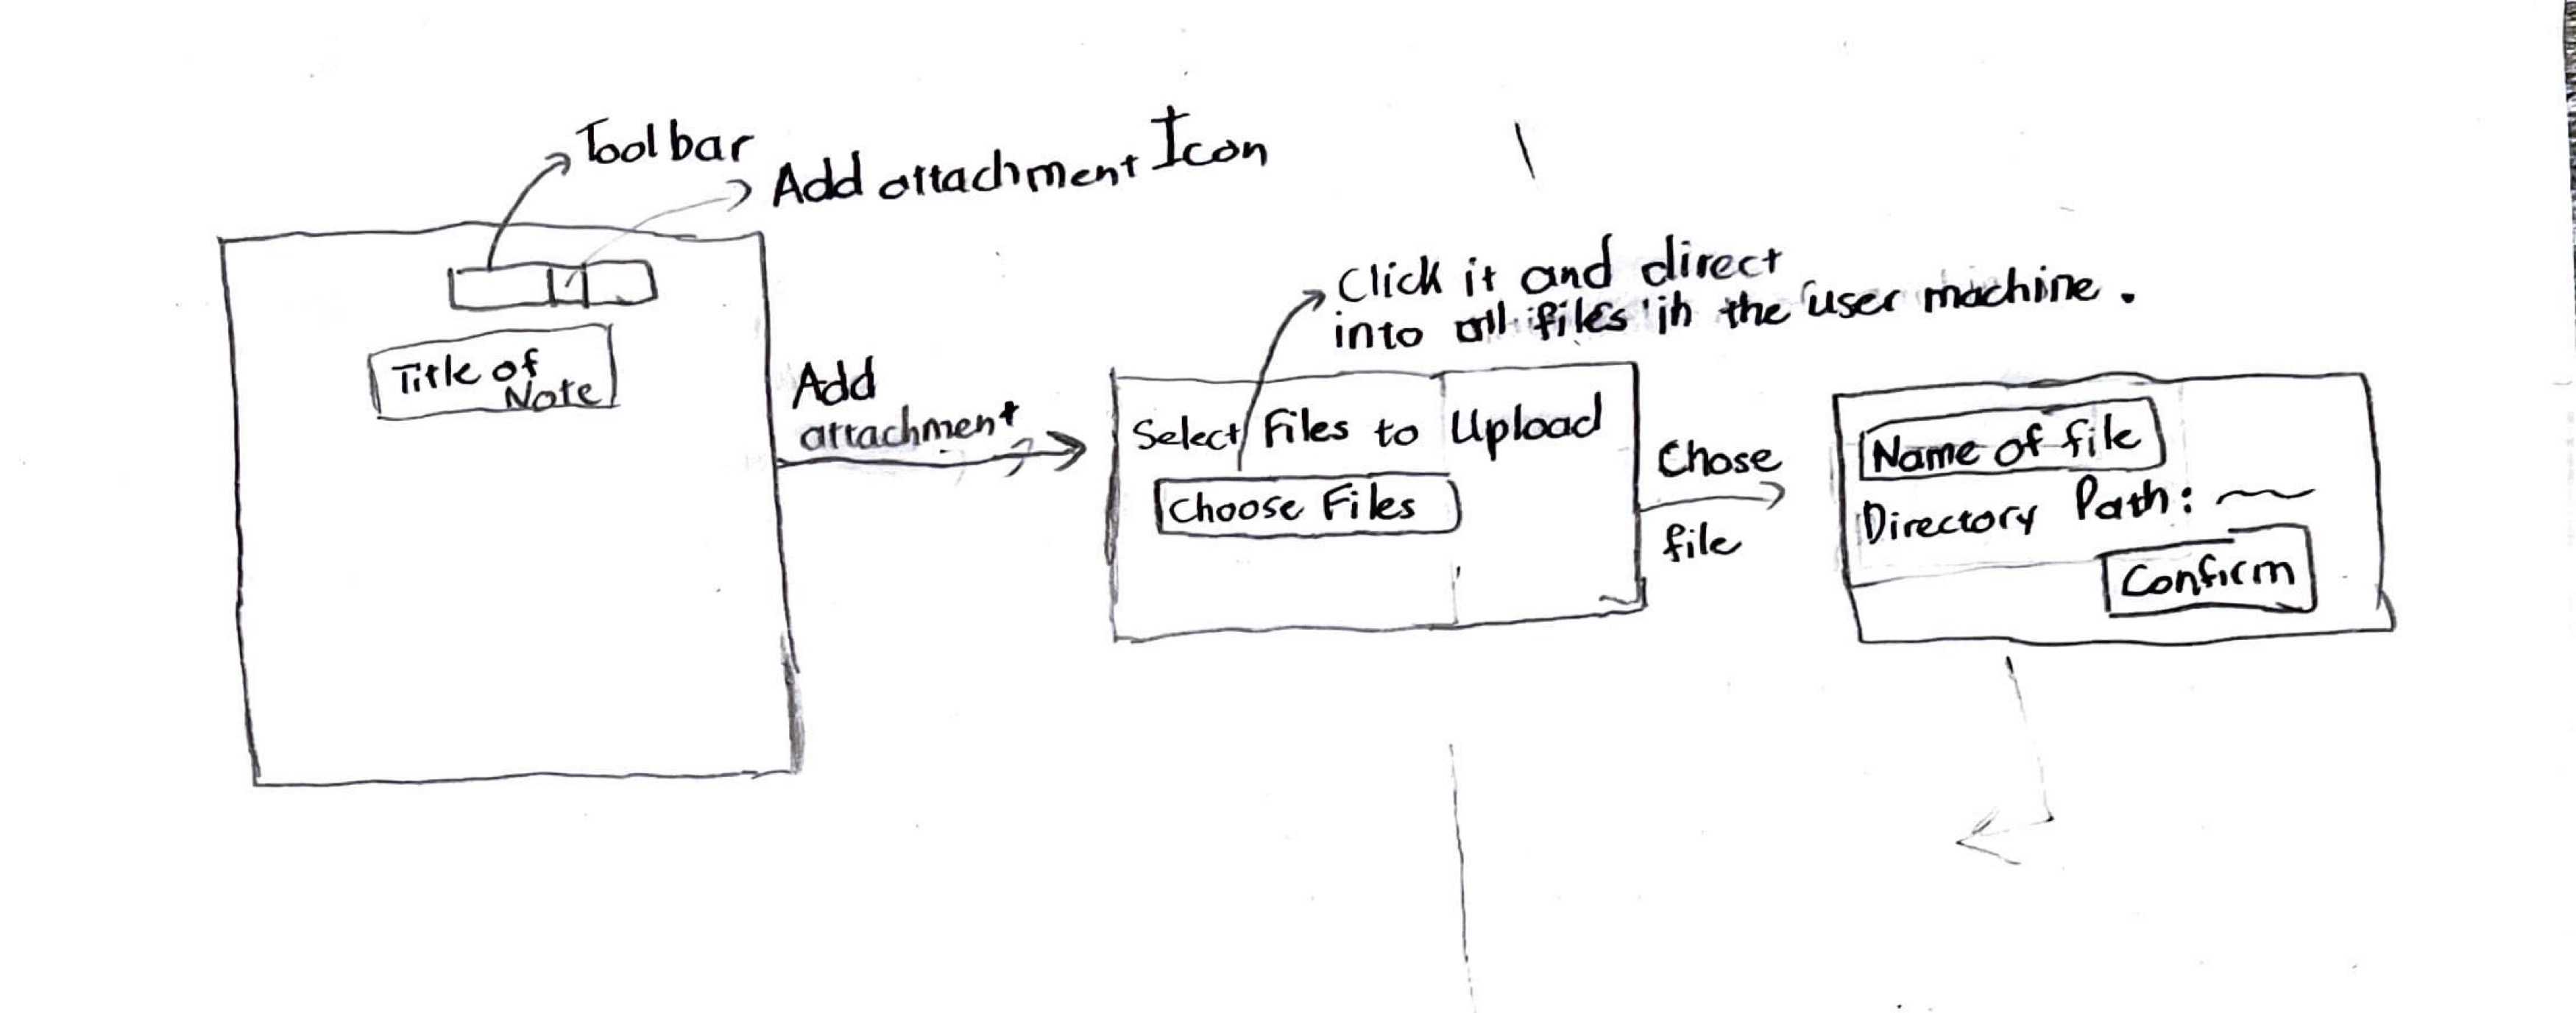 Toolbar
Add attachment Icon
Title of
Note
Add
attachment
Click it and direct
into all files in the user machine.
Select Files to Upload
Choose Files
Chose
file
Name of file
Directory Path:
Confirm